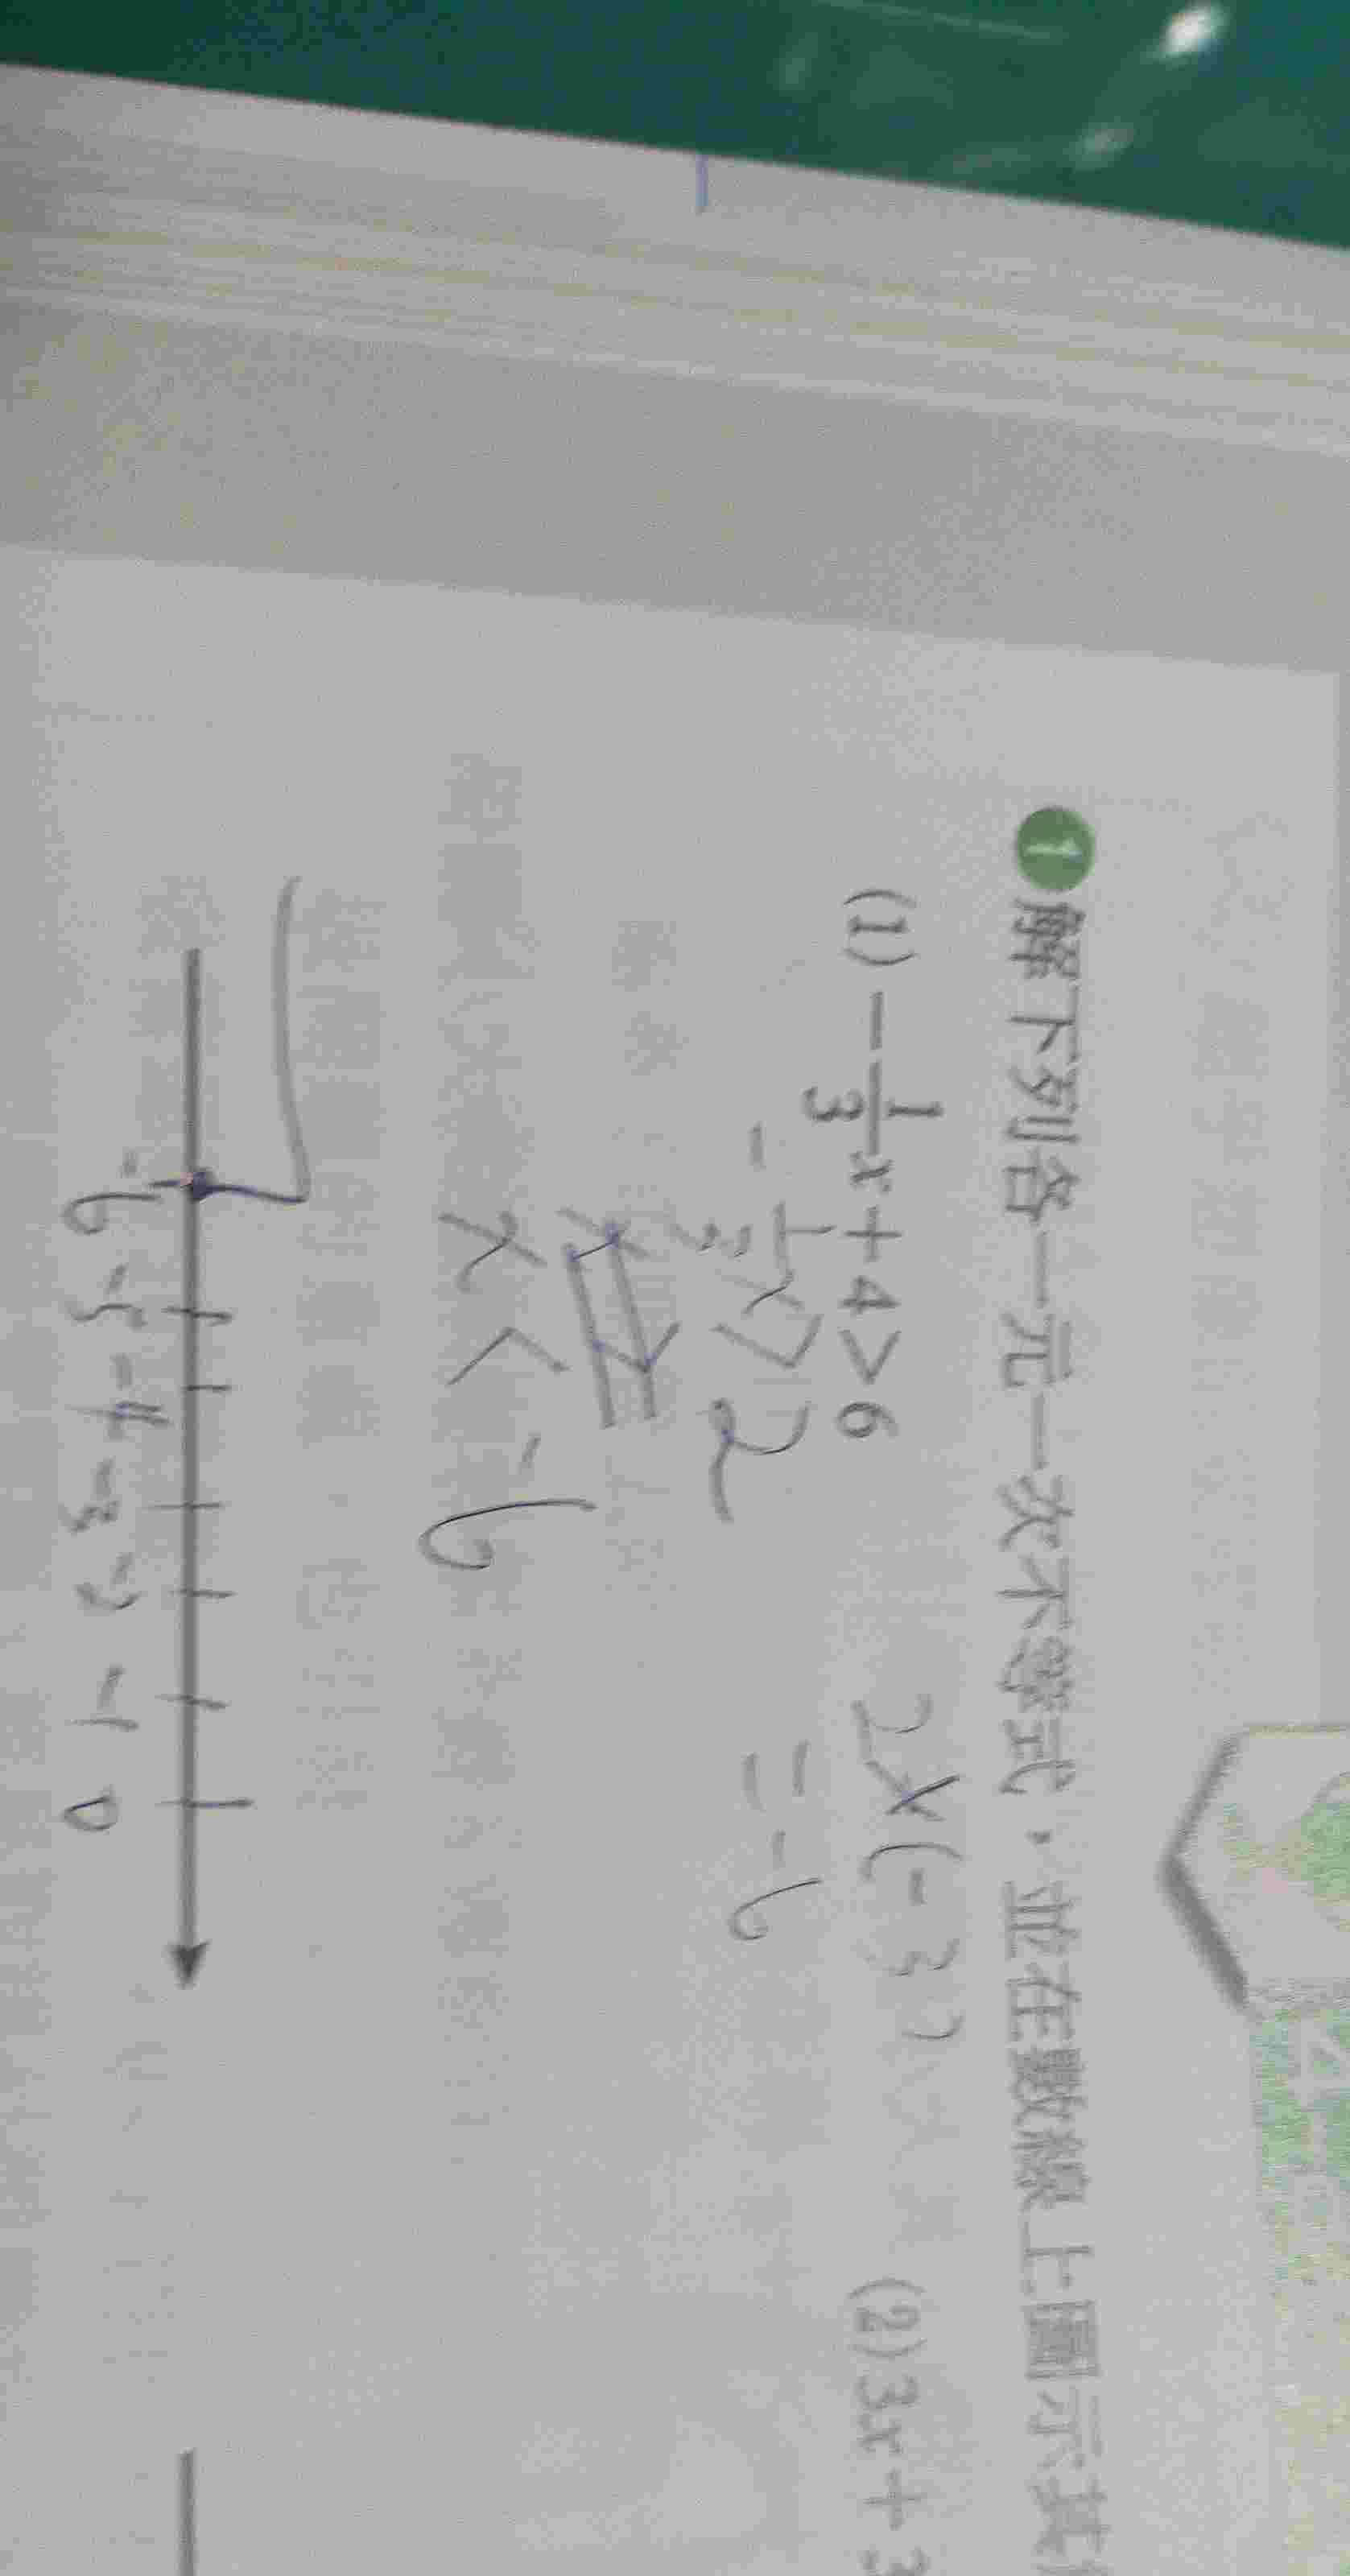 1 解下列各一元一次不等式，並在數線上圖示其
(1) -1/3x+4>6
2×(-3)
(2) 3x+3
-1/3x>2
=-6
x<-6
-6 -5 -4 -3 -2 -1 0